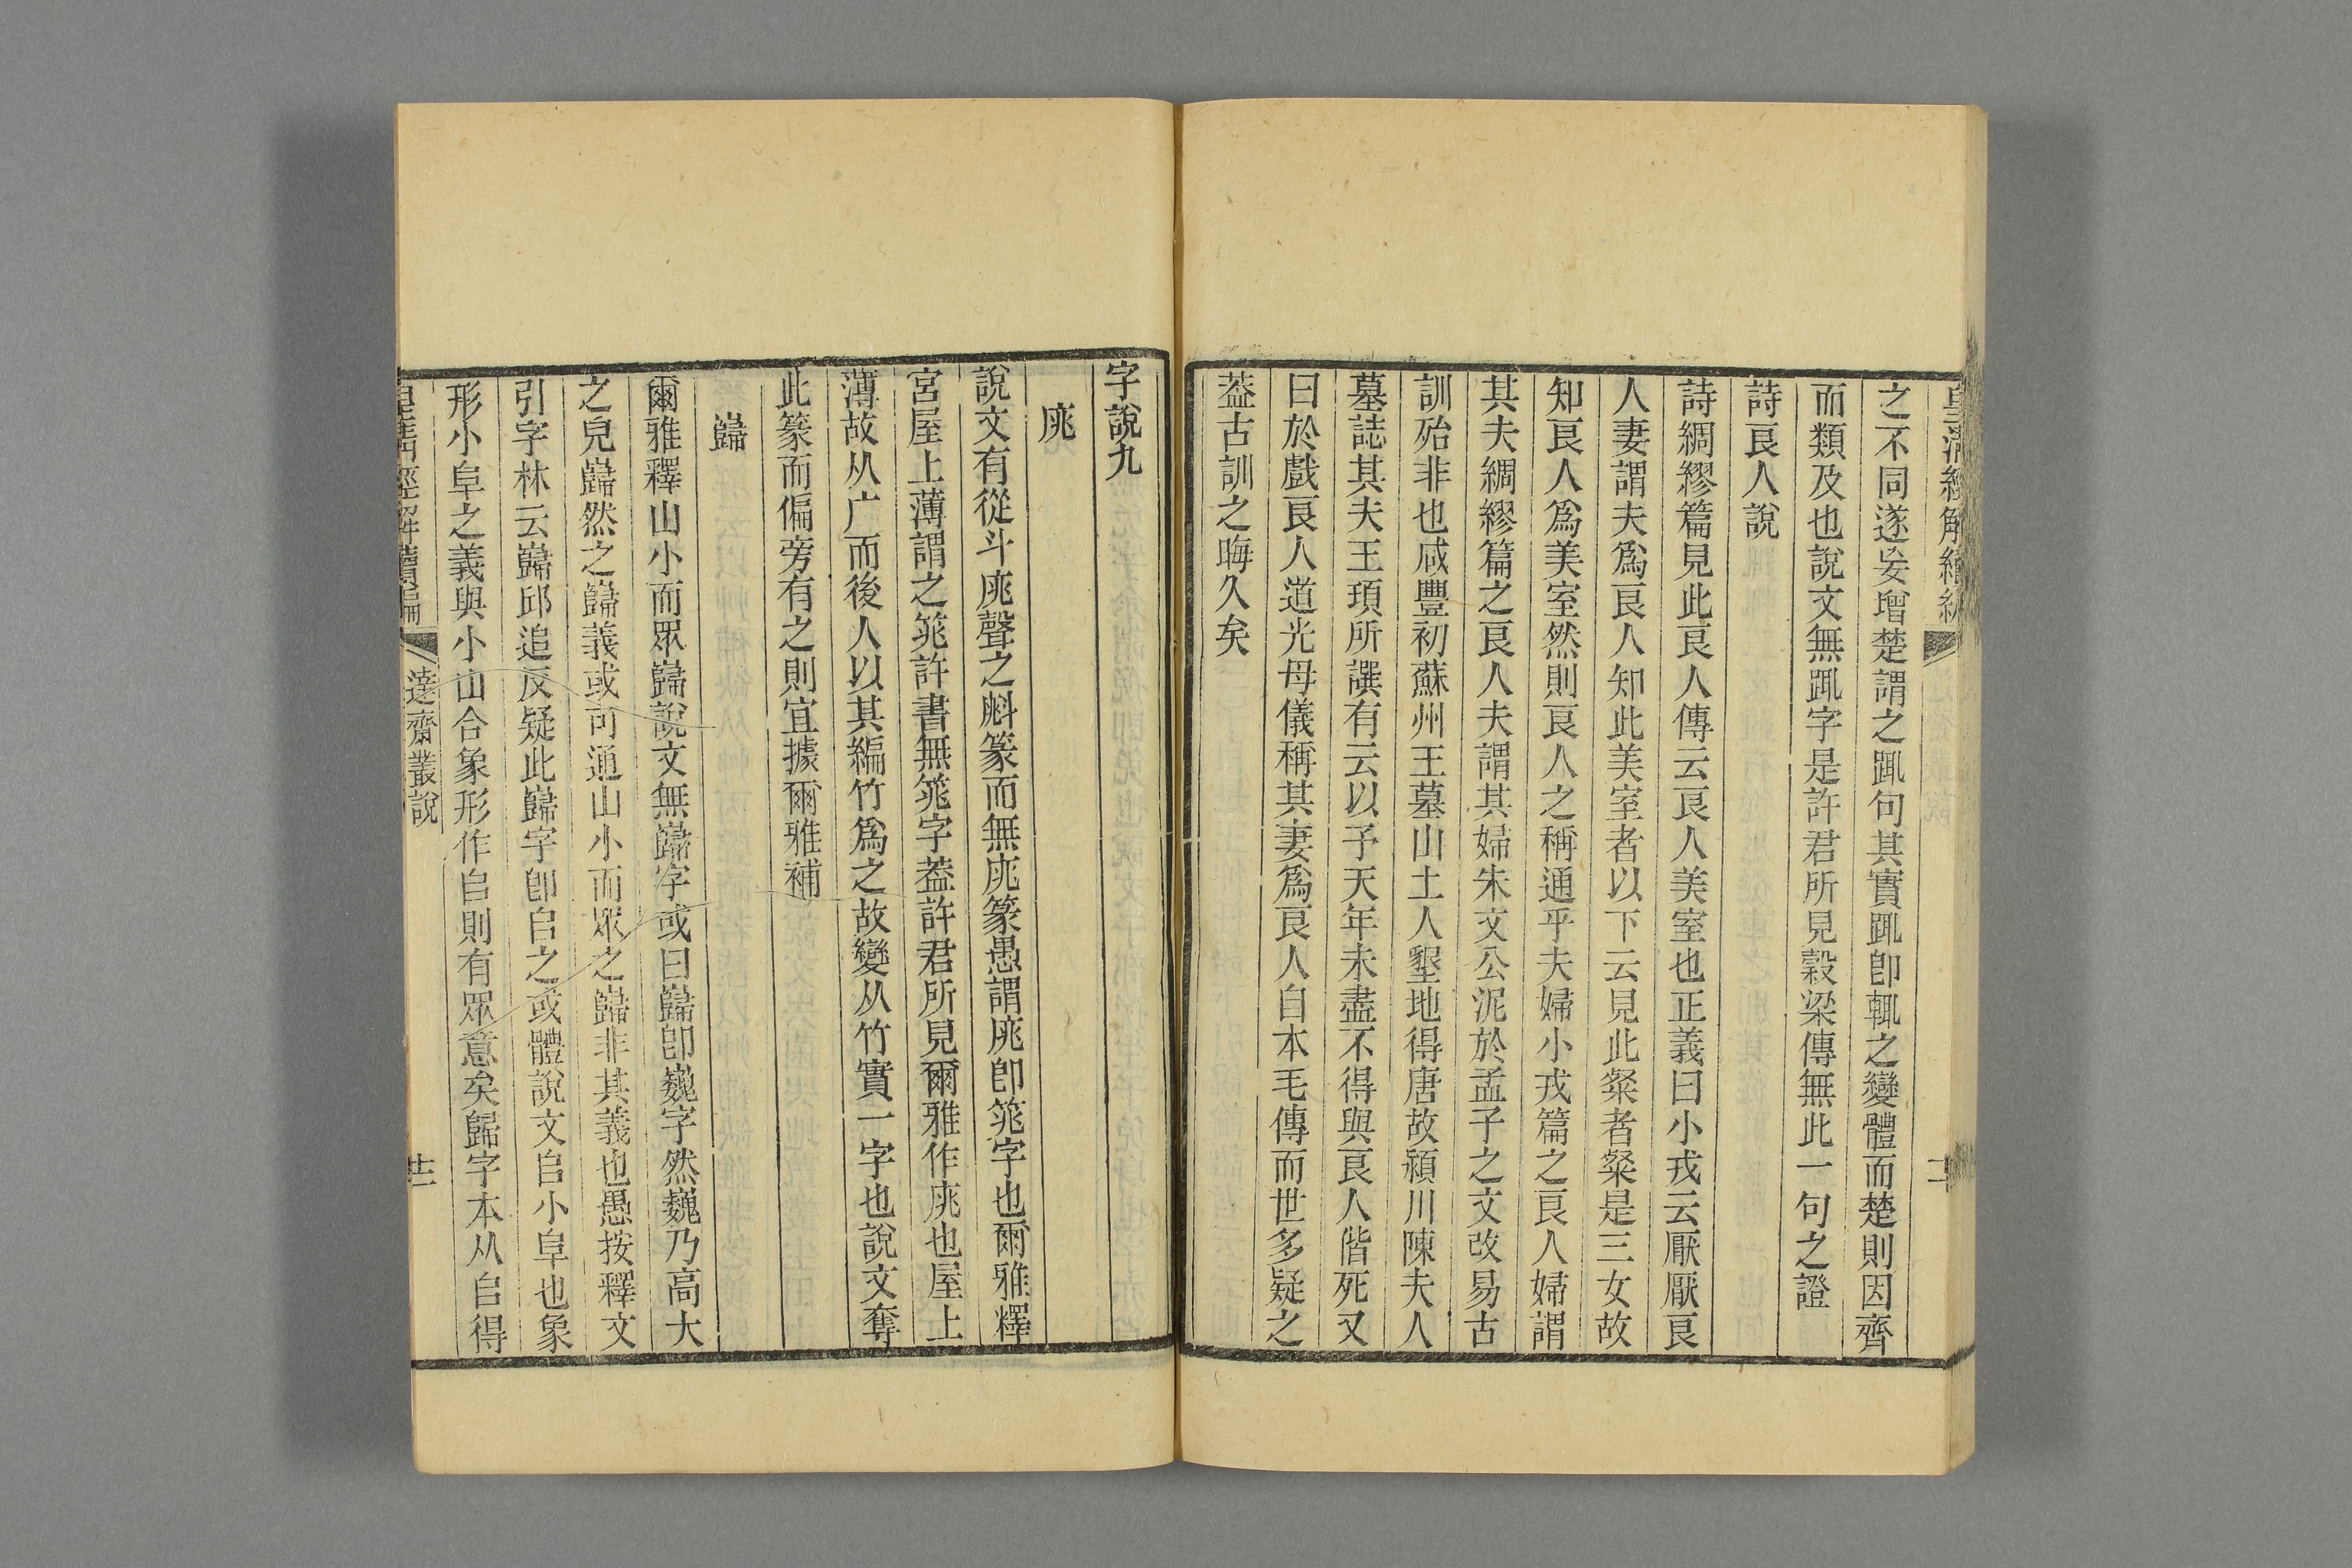 之不同遂妄增楚謂之踂句其實踂卽輒之變體而楚則因齊
而類及也說文無踂字是許君所見穀梁傳無此一句之證
詩良人說
詩綢繆篇見此良人傳云良人美室也正義曰小戎云厭厭良
人妻謂夫爲良人知此美室者以下云見此粲者粲是三女故
知良人爲美室然則良人之稱通乎夫婦小戎篇之良人婦謂
其夫綢繆篇之良人夫謂其婦朱文公泥於孟子之文改易古
訓殆非也咸豐初蘇州王墓山土人墾地得唐故潁川陳夫人
墓誌其夫王頊所譔有云以予天年未盡不得與良人偕死又
曰於戲良人道光母儀稱其妻爲良人自本毛傳而世多疑之
葢古訓之晦久矣
字說九
庣
說文有從斗庣聲之斛篆而無庣篆愚謂庣卽筄字也爾雅釋
宮屋上薄謂之筄許書無筄字葢許君所見爾雅作庣也屋上
薄故从广而後人以其編竹爲之故變从竹實一字也說文奪
此篆而偏旁有之則宜據爾雅補
巋
爾雅釋山小而眾巋說文無巋字或曰巋卽巍字然巍乃高大
之皃巋然之巋義或可通山小而眾之巋非其義也愚按釋文
引字林云巋邱追反疑此巋字卽𠂤之或體說文𠂤小阜也象
形小阜之義與小山合象形作𠂤則有眾意矣歸字本从𠂤得
皇淸經解續編 達齋叢說 十二